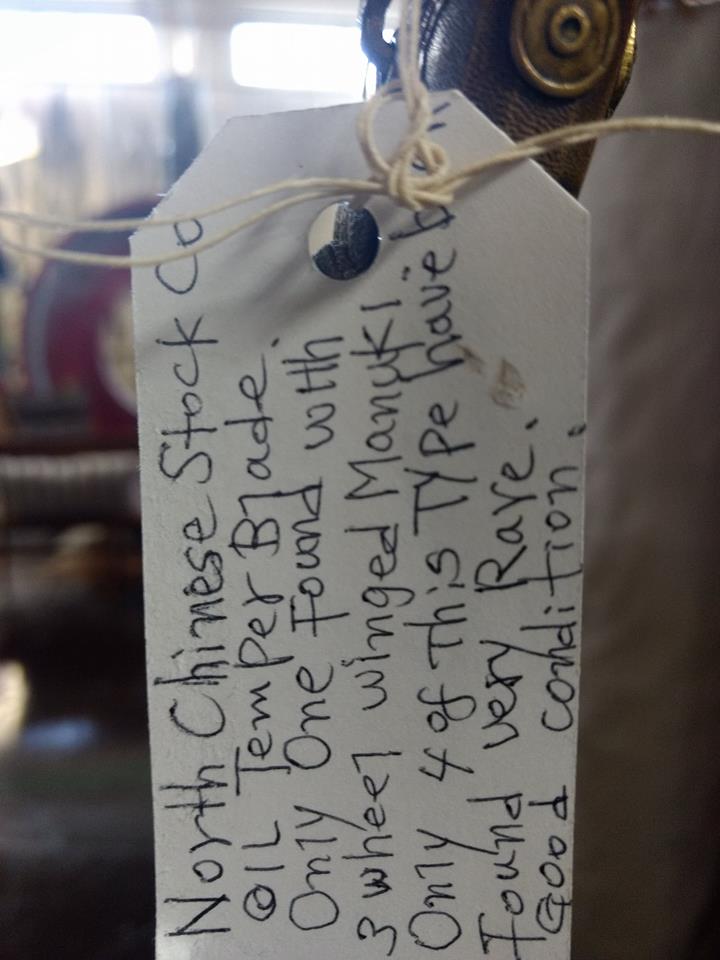 North Chinese Stock Co
OIL Temper Blade.
Only One Found with
3 wheel winged Manuki
Only 4 of This Type have
Found very Rare.
Good condition.